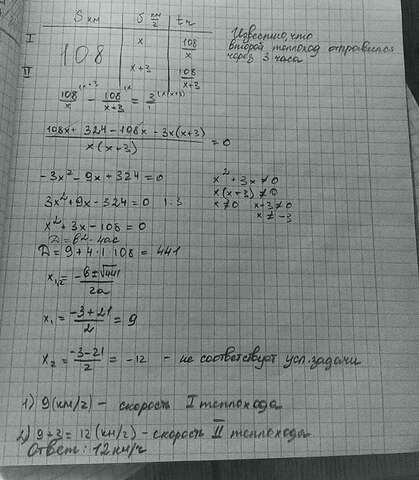 S км | v км/ч | t ч
I | 108 | x | 108/x
II | x+3 | 108/x+3
Известно, что
второй теплоход отправился
через 3 часа
108/x ^(x+3 - 108/x+3 ^(x = 3/1 ^(x(x+3)
108x + 324 - 108x - 3x(x+3) / x(x+3) = 0
-3x² - 9x + 324 = 0
x² + 3x ≠ 0
x(x+3) ≠ 0
3x² + 9x - 324 = 0 | : 3
x ≠ 0 x+3 ≠ 0
x ≠ -3
x² + 3x - 108 = 0
D = b² - 4ac
D = 9 + 4 · 1 · 108 = 441
x₁,₂ = -b ± √441 / 2a
x₁ = -3 + 21 / 2 = 9
x₂ = -3 - 21 / 2 = -12 - не соответствует усл. задачи
1) 9 (км/ч) - скорость I теплохода
2) 9 + 3 = 12 (км/ч) - скорость II теплохода
Ответ: 12 км/ч